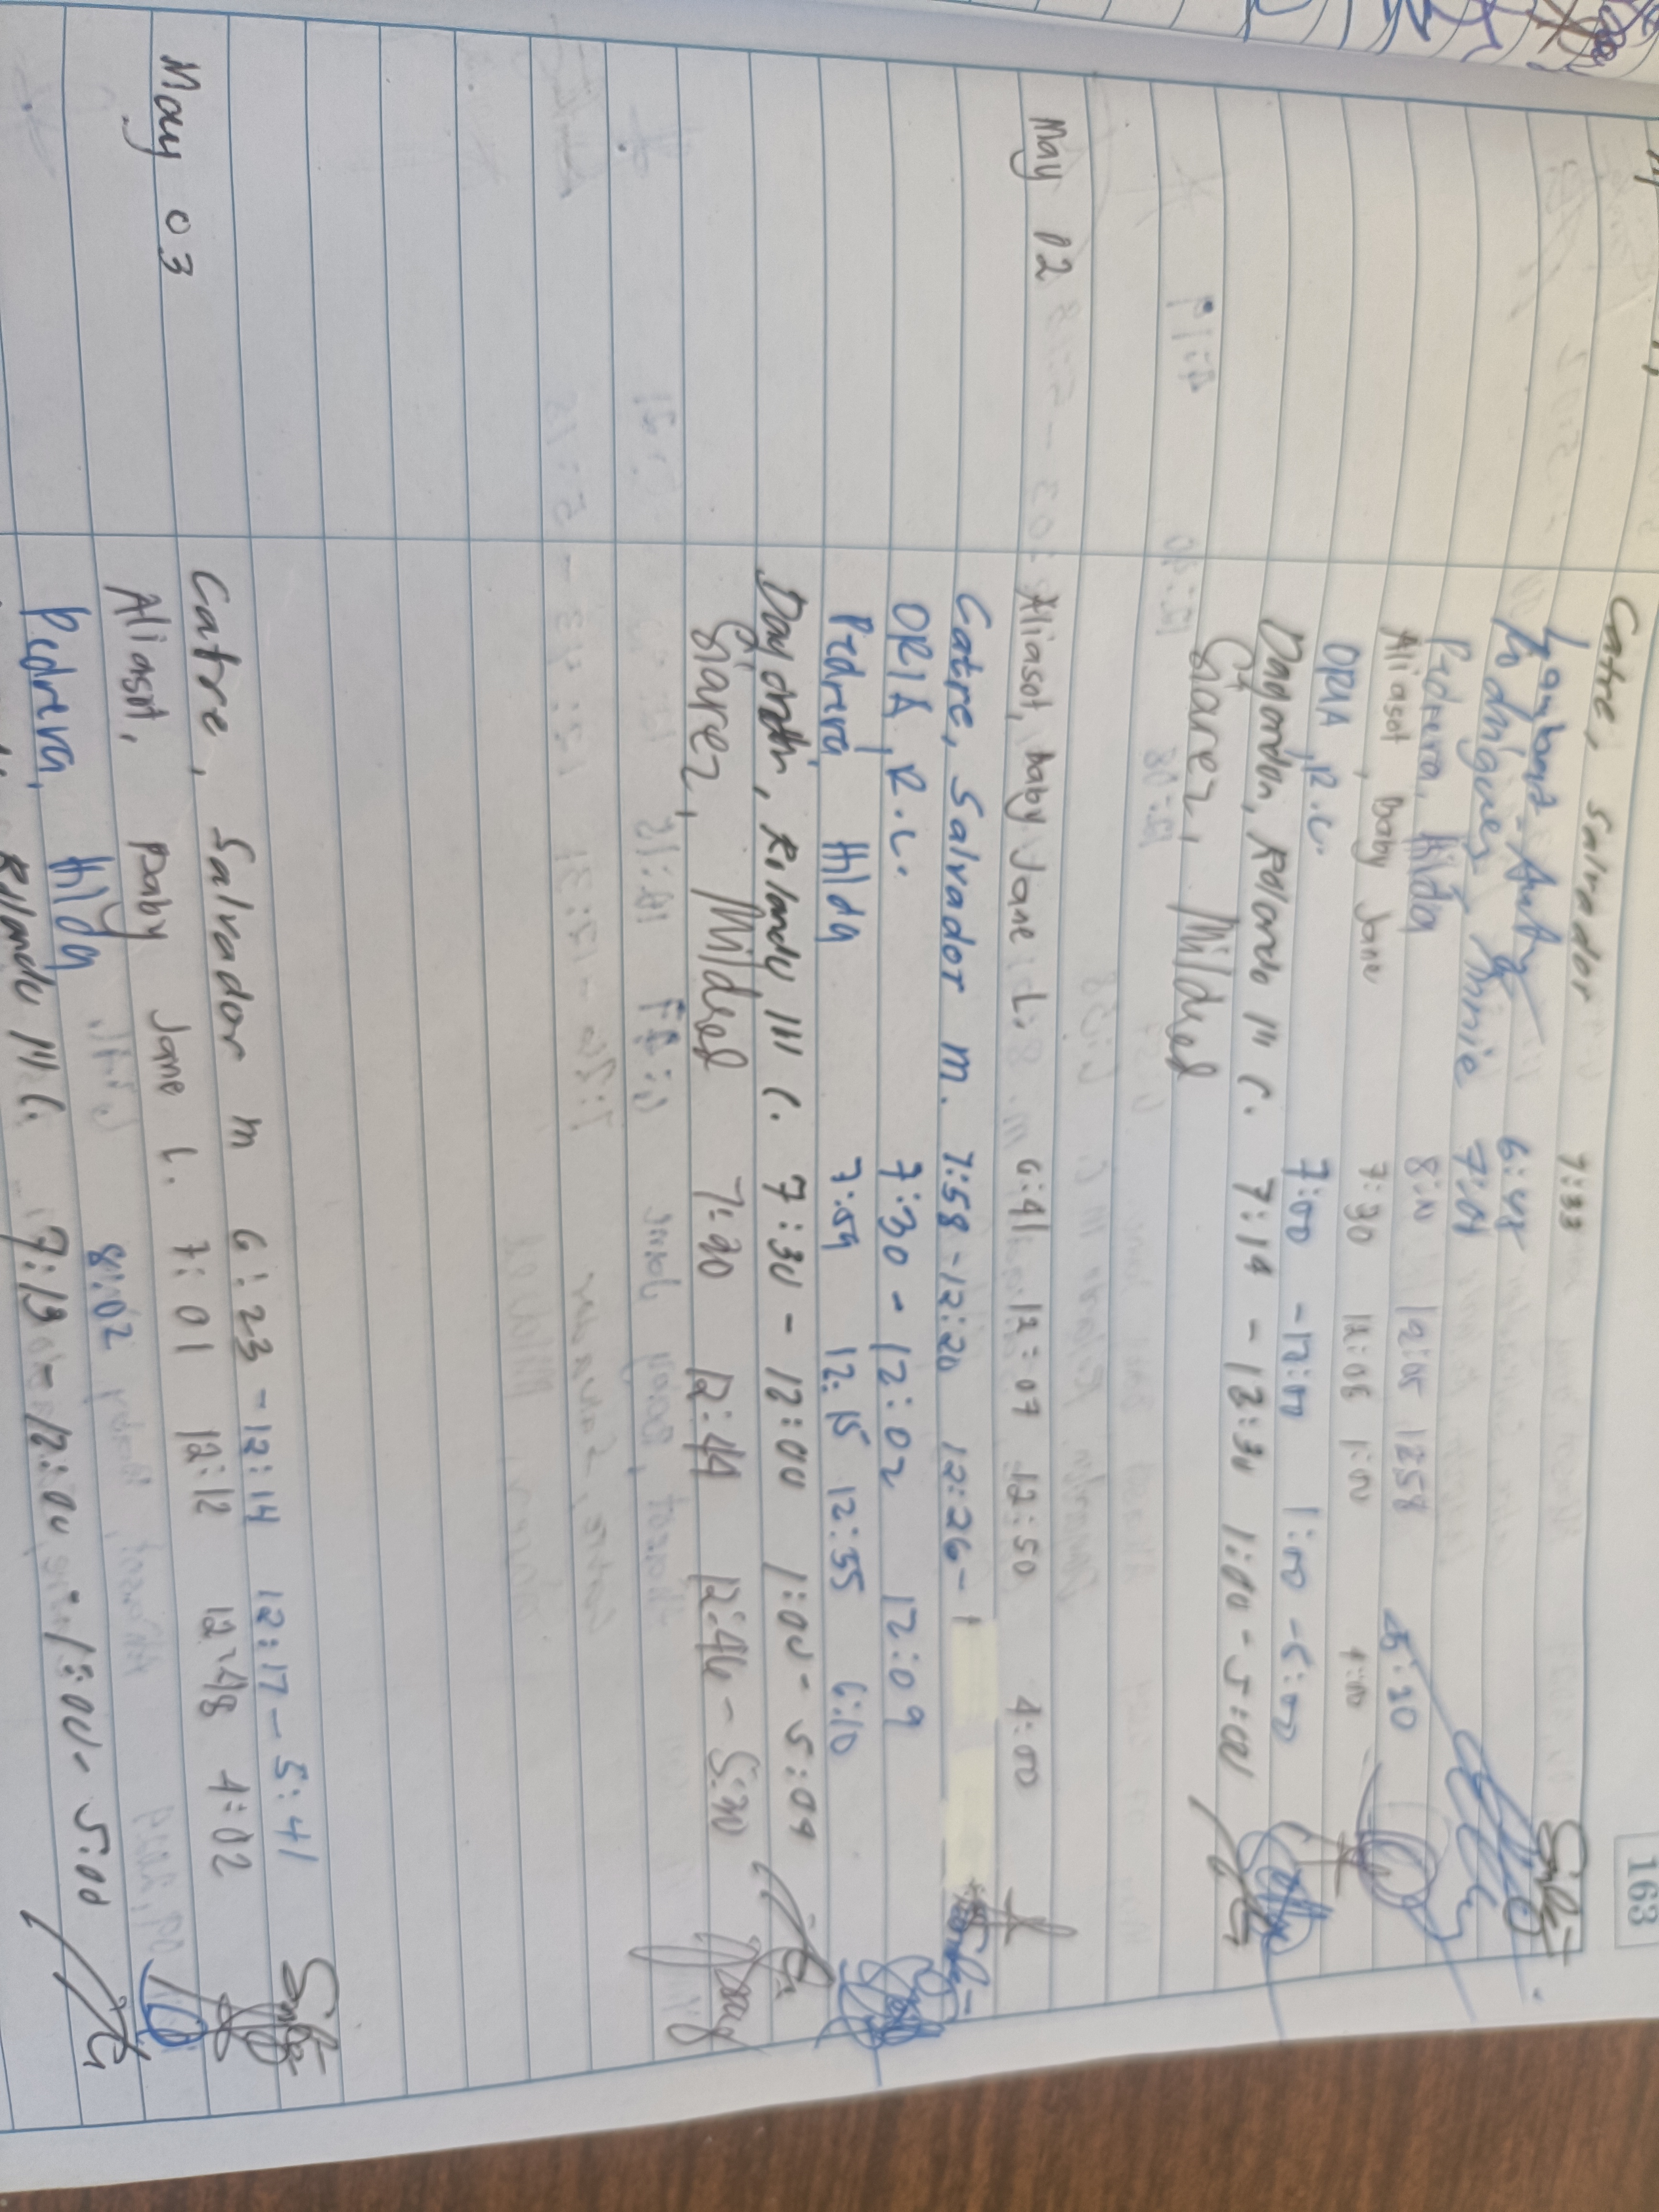 163
Catre, Salvador 7:33
6:48
Rodriguez, Minnie 7:01
Pedrera, Hilda 8:10 12:05 12:58 5:30
Aliasot, Baby Jane 7:30 12:06 1:00 4:00
ORIA, R.L. 7:00 - 12:00 1:00 - 5:00
Dagondon, Rolando III C. 7:19 - 12:30 1:00 - 5:00
Giarez, Mildred
May 02 Aliasot, baby Jane L. 6:41 12:07 12:50 4:00
Catre, Salvador M. 7:58 - 12:20 12:26 -
ORIA, R.L. 7:30 - 12:02 12:09
Pedrera, Hilda 7:59 12:15 12:55 6:10
Rolando III C. 7:30 - 12:00 1:00 - 5:09
Giarez, Mildred 7:20 12:44 12:46 - 5:30
May 03
Catre, Salvador M 6:23 - 12:14 12:17 - 5:41
Aliasot, Baby Jane L. 7:01 12:12 12:48 4:02
Pedrera, Hilda 8:02
Rolando III C. 7:19 - 12:00 1:00 - 5:00